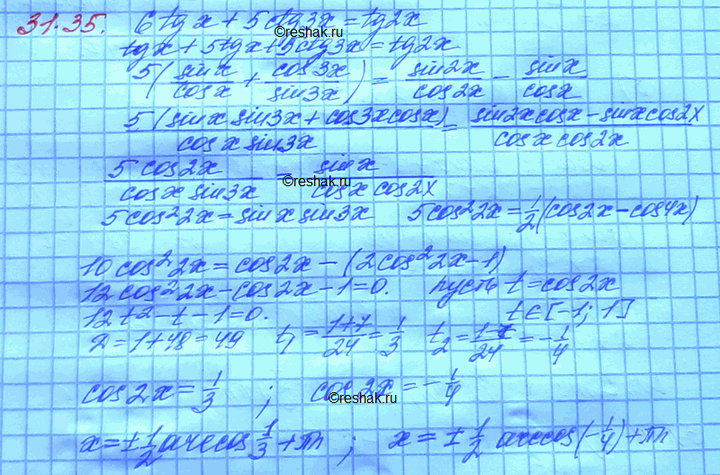 31.35. 6tg x + 5ctg3x = tg2x
tg x + 5tg x + 5ctg 3x = tg2x
©reshak.ru
5(sin x/cos x + cos 3x/sin 3x) = sin 2x/cos 2x − sin x/cos x
5(sin x sin 3x + cos 3x cos x)/cos x sin 3x = sin 2x cos x − sin x cos 2x/cos x cos 2x
5 cos 2x/cos x sin 3x = sin x/cos x cos 2x
©reshak.ru
5cos² 2x = sin x sin 3x 5cos² 2x = 1/2(cos 2x − cos 4x)
10 cos² 2x = cos 2x − (2cos² 2x − 1)
12 cos² 2x − cos 2x − 1 = 0. пусть t = cos 2x
12t² − t − 1 = 0. t ∈ [−1; 1]
D = 1 + 48 = 49 t₁ = 1+7/24 = 1/3 t₂ = 1−7/24 = −1/4
cos 2x = 1/3 ; cos 2x = −1/4
©reshak.ru
x = ± 1/2 arccos 1/3 + πn ; x = ± 1/2 arccos(−1/4) + πn